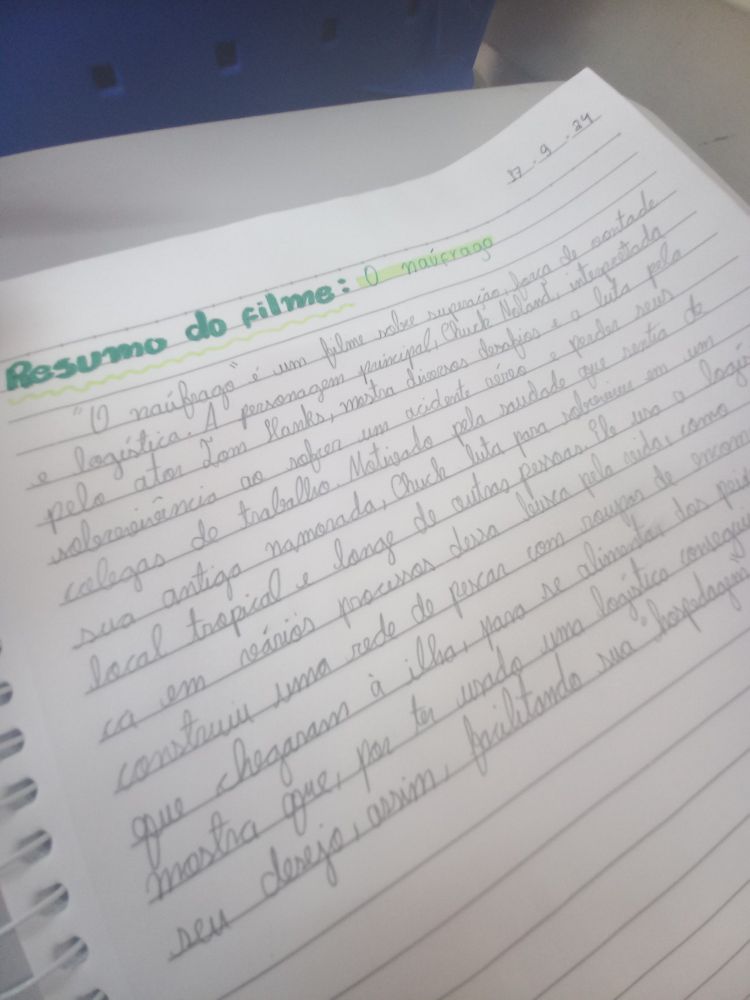 17.9.24
Resumo do filme: O naúfrago
"O naúfrago" é um filme sobre superação, força de vontade
e logística. A personagem principal, Chuck Noland, interpretada
pelo ator Tom Hanks, mostra diversos desafios e a luta pela
sobrevivência ao sofrer um acidente aéreo e perder seus
colegas de trabalho. Motivado pela saudade que sentia de
sua antiga namorada, Chuck luta para sobreviver em um
local tropical e longe de outras pessoas. Ele usa a logísti
ca em vários processos dessa busca pela vida, como
construiu uma rede de pescar com roupas de encom
que chegaram à ilha, para se alimentar dos peix
mostra que, por ter usado uma logística consegui
seu desejo, assim, facilitando sua "hospedagem"